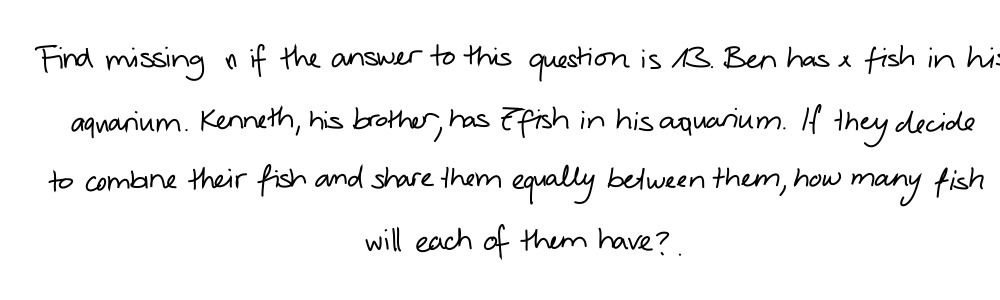 Find missing n if the answer to this question is 13. Ben has x fish in his
aquarium. Kenneth, his brother, has 7 fish in his aquarium. If they decide
to combine their fish and share them equally between them, how many fish
will each of them have?.